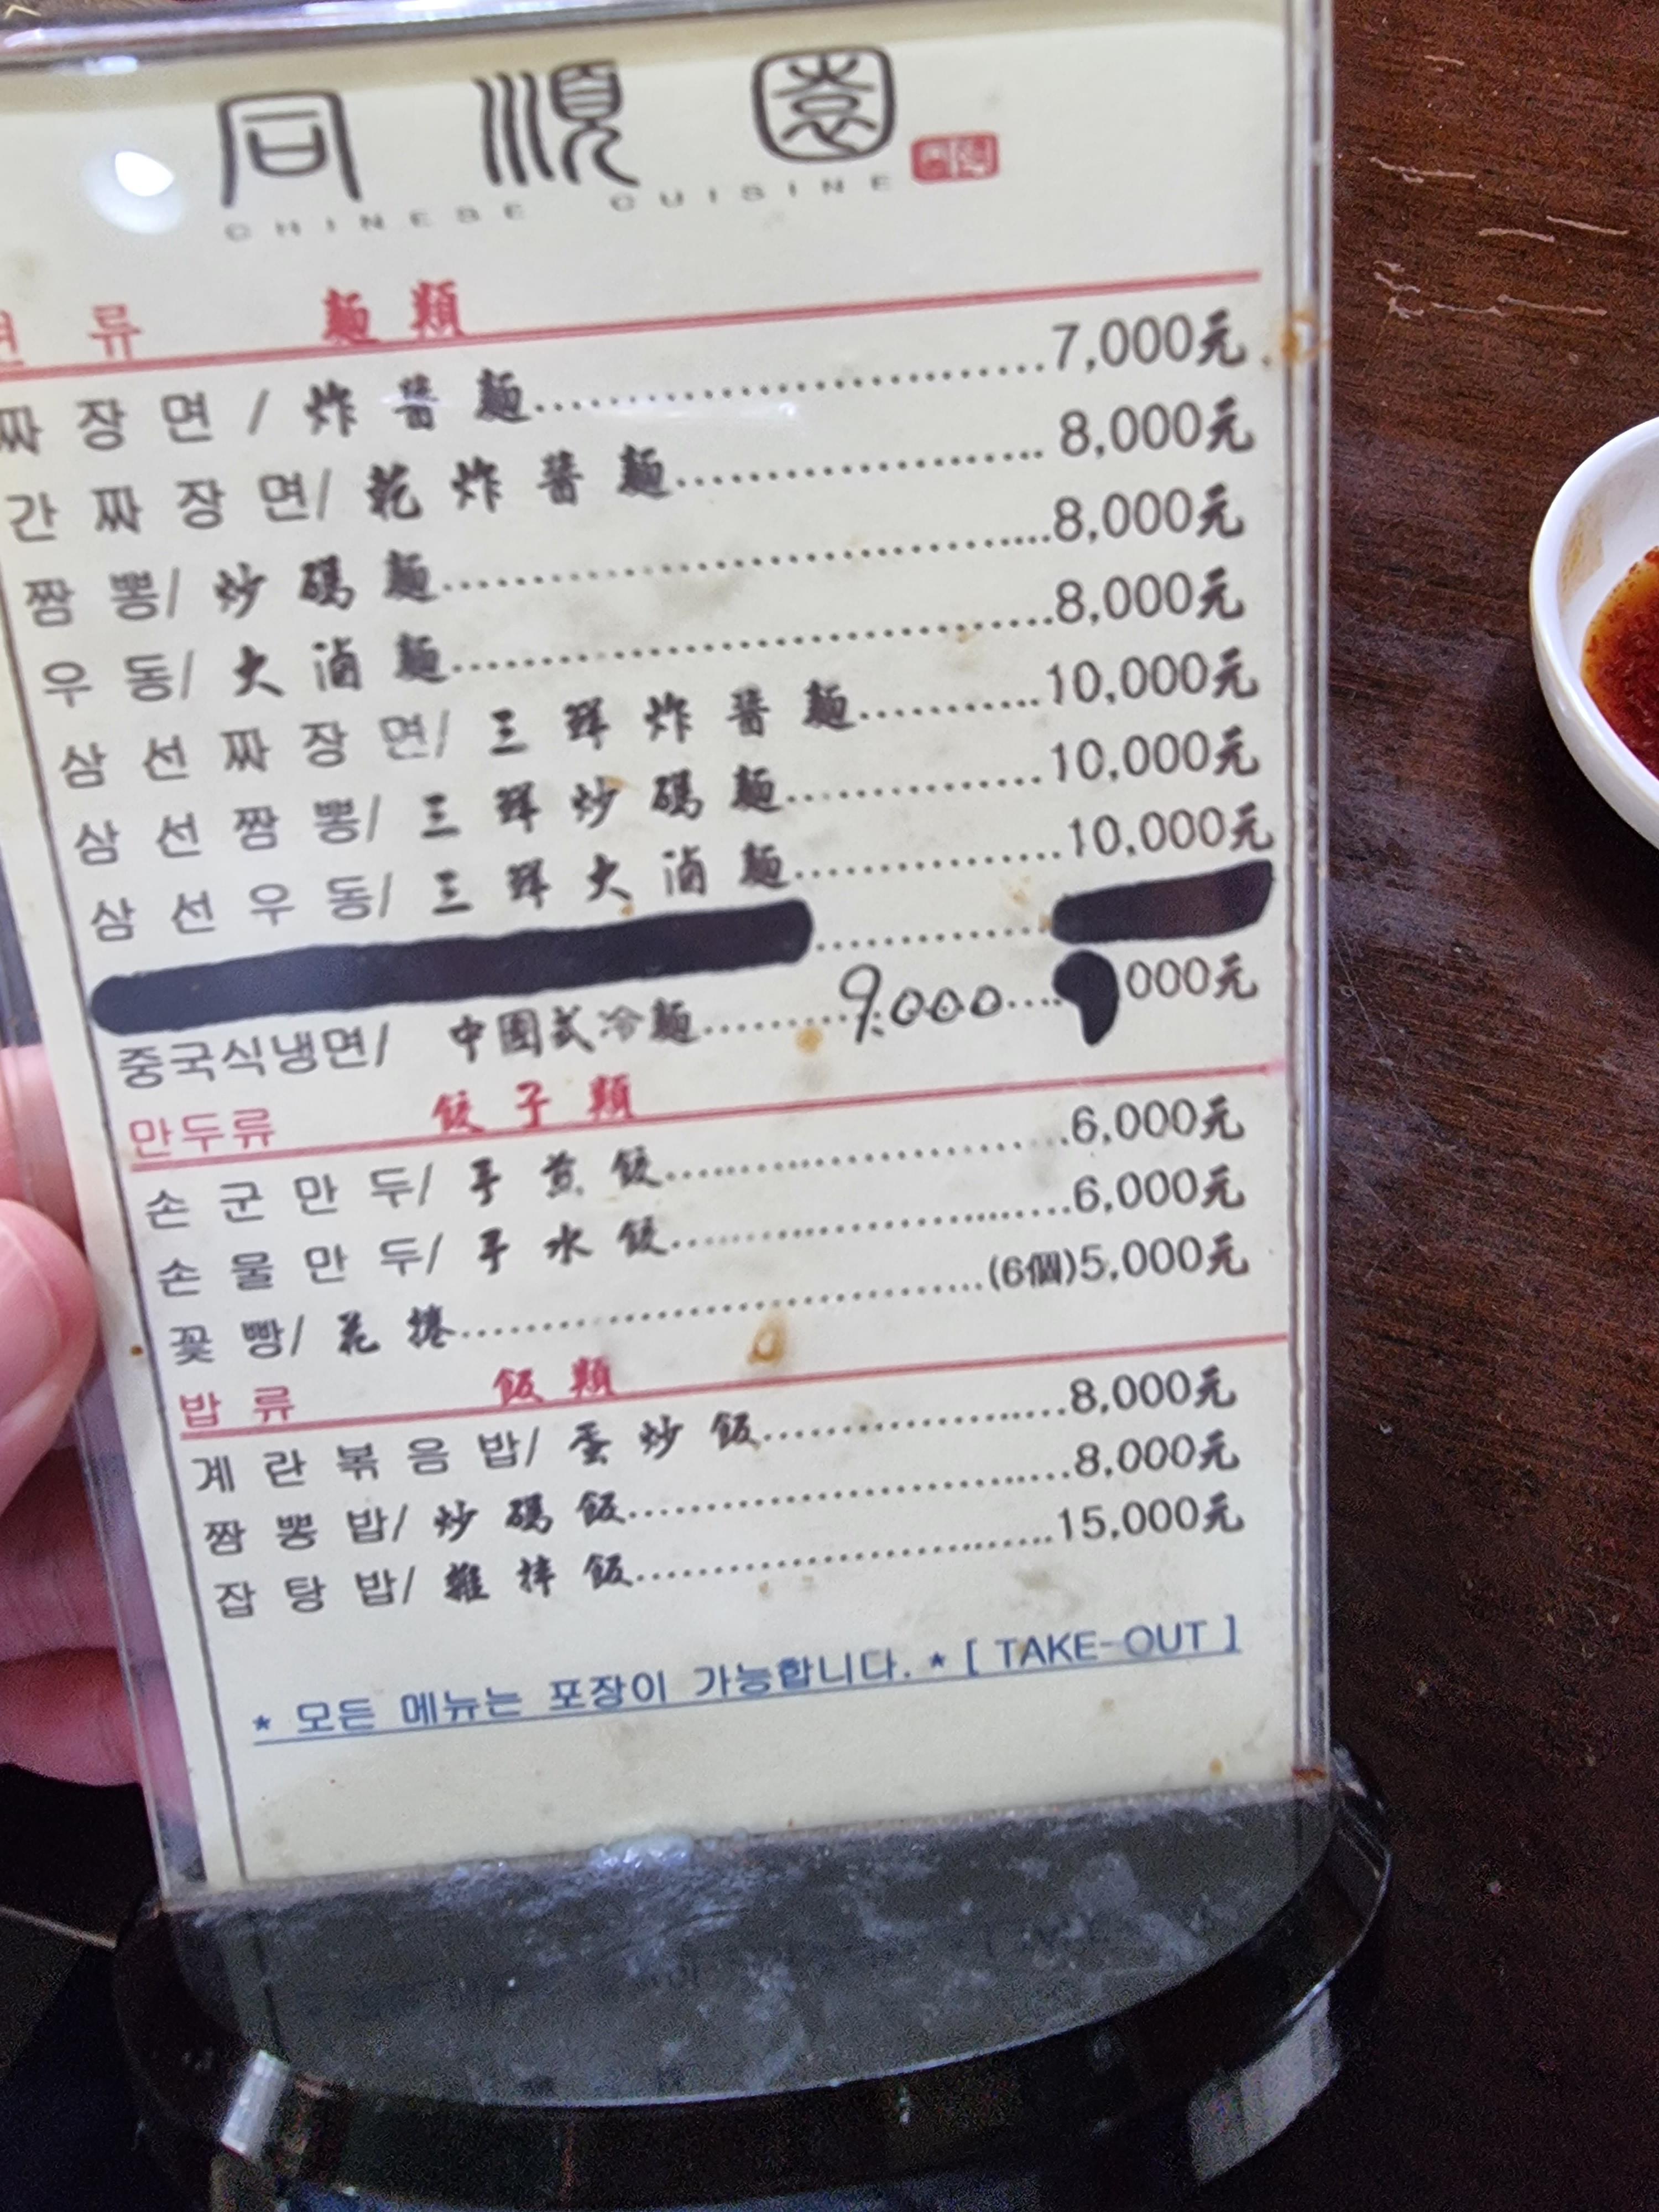 同順園
CHINESE CUISINE
면 류 麵 類
짜 장 면 / 炸 醬 麵....................................7,000元
간 짜 장 면/ 乾 炸 醬 麵........................... 8,000元
짬 뽕/ 炒 碼 麵............................................8,000元
우 동/ 大 滷 麵............................................8,000元
삼 선 짜 장 면/ 三 鮮 炸 醬 麵.............10,000元
삼 선 짬 뽕/ 三 鮮 炒 碼 麵...................10,000元
삼 선 우 동/ 三 鮮 大 滷 麵...................10,000元
중국식냉면/ 中國式冷麵..........9.000....000元
만두류 餃 子 類
손 군 만 두/ 手 煎 餃..............................6,000元
손 물 만 두/ 手 水 餃..............................6,000元
꽃 빵/ 花 捲......................................(6個)5,000元
밥 류 飯 類
계 란 볶 음 밥/ 蛋 炒 飯......................8,000元
짬 뽕 밥/ 炒 碼 飯................................8,000元
잡 탕 밥/ 雜 拌 飯...............................15,000元
* 모든 메뉴는 포장이 가능합니다. * [ TAKE-OUT ]